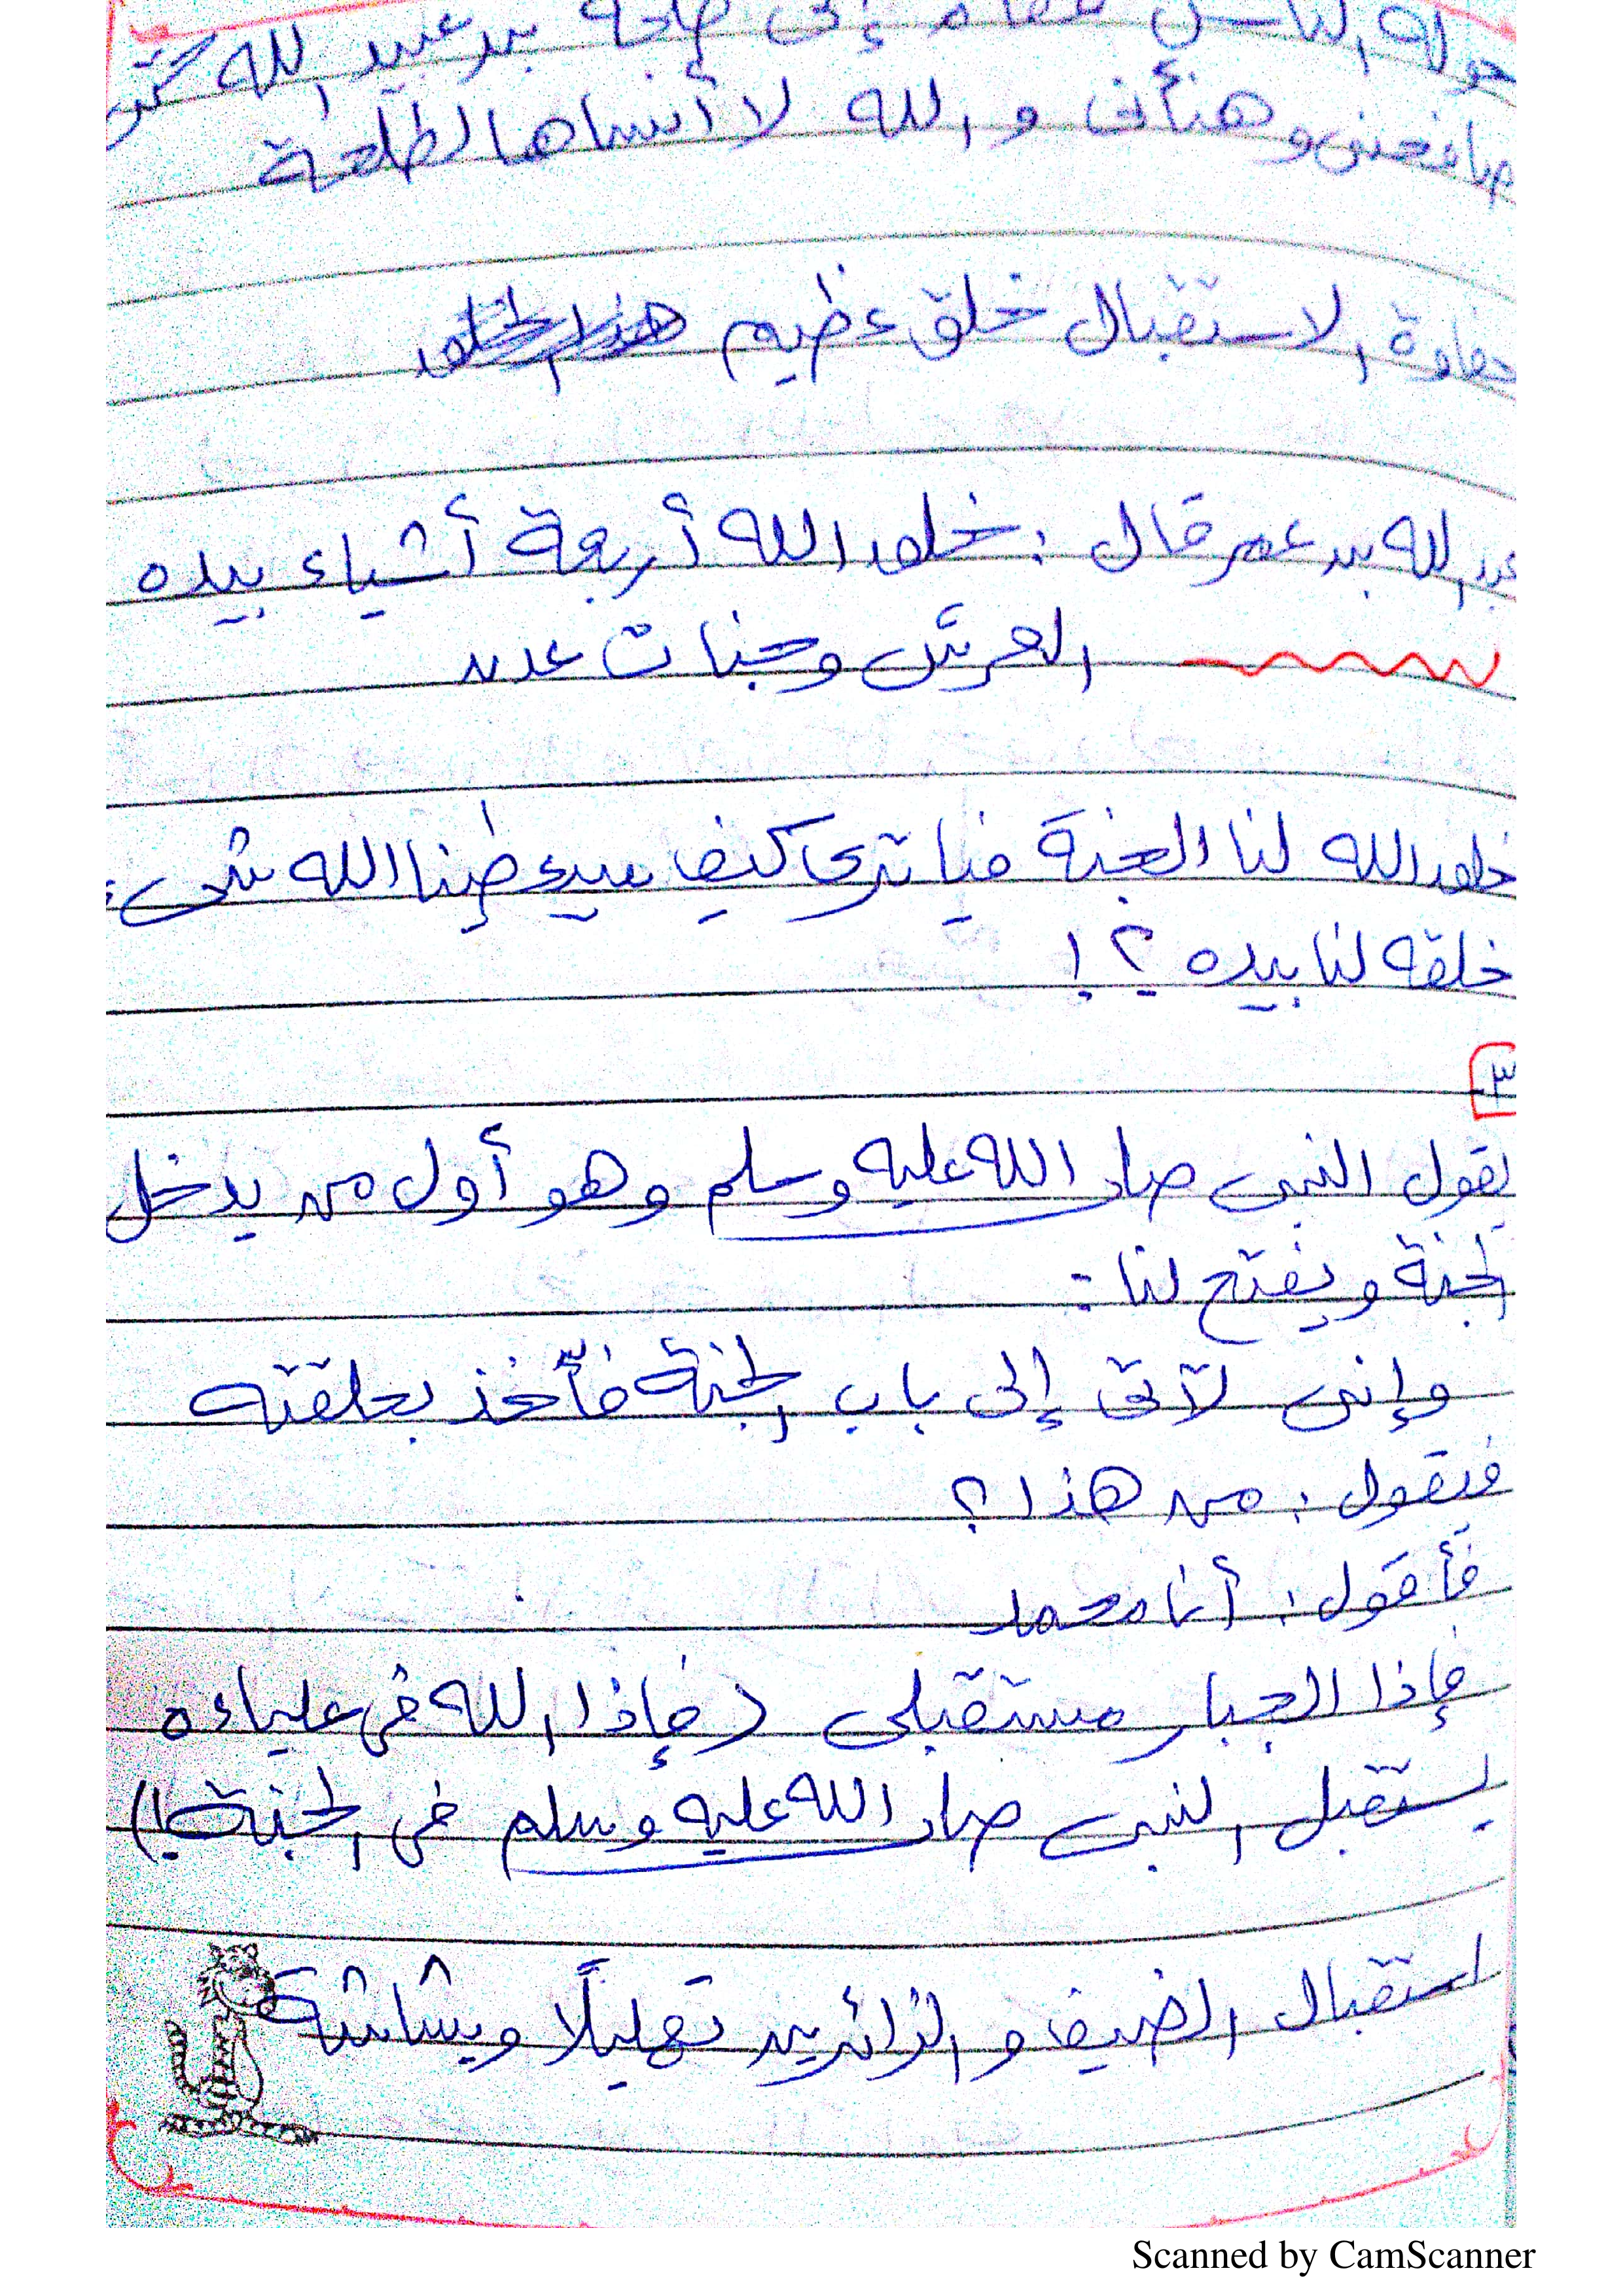 حوله الناس فقام إلى طلحة بن عبيد الله حتى
صافحنى وهنأنى والله لا أنساها لطلحة
حفاوة الاستقبال خلق عظيم
عبد الله بن عمر قال : خلق الله أربعة أشياء بيده
العرش وجنات عدن
خلق الله لنا الجنة فيا ترى كيف سيعطينا الله شىء
خلقه لنا بيده ؟!
٣
يقول النبى صلى الله عليه وسلم وهو أول من يدخل
الجنة ويفتح لنا :
وإنى لآتى إلى باب الجنة فآخذ بحلقته
فتقول : من هذا ؟
فأقول : أنا محمد
فإذا الجبار مستقبلى (فإذا الله فى علياءه
يستقبل النبى صلى الله عليه وسلم فى الجنة !)
استقبال الضيف والزائرين تهليلًا وبشاشة
Scanned by CamScanner